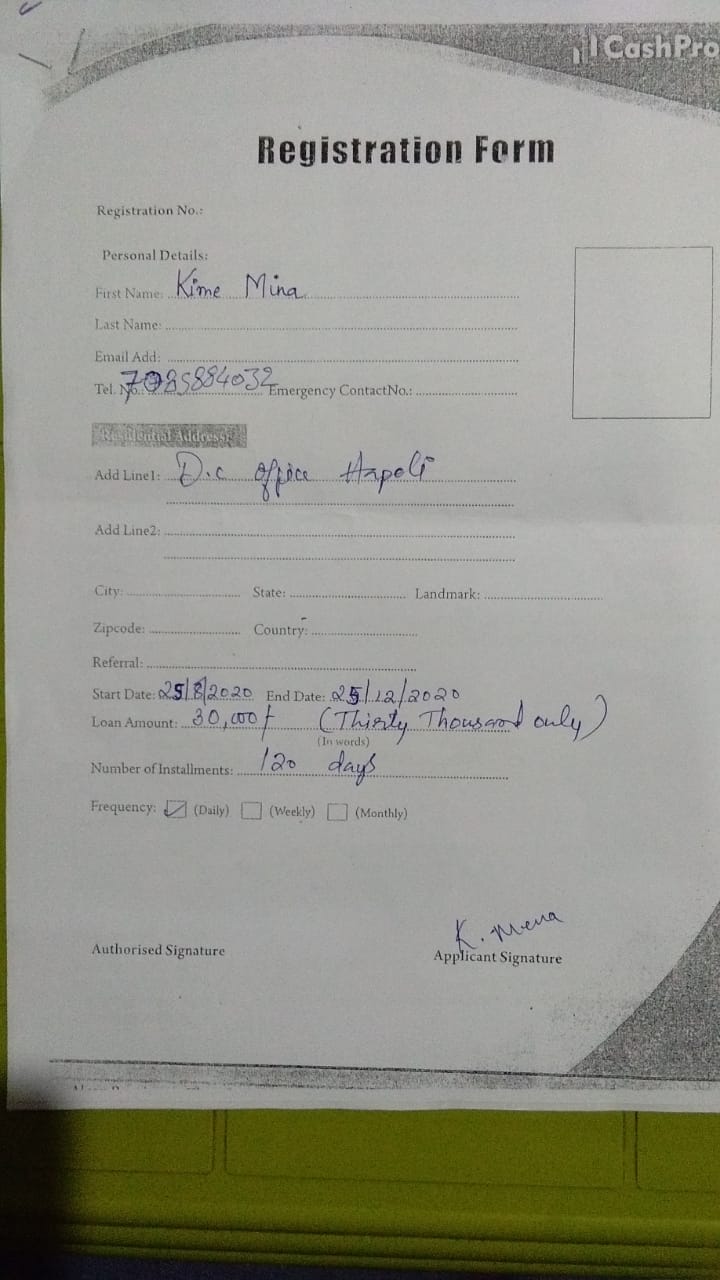 CashPro
Registration Form
Registration No.:
Personal Details:
First Name: Kime Mina
Last Name:
Email Add:
Tel. No.: 7085884032 Emergency ContactNo.:
Residential Address:
Add Line1: D.c office Hapoli
Add Line2:
City: State: Landmark:
Zipcode: Country:
Referral:
Start Date: 25/8/2020 End Date: 25/12/2020
Loan Amount: 30,000/- (Thirty Thousand only)
(In words)
Number of Installments: 120 days
Frequency: (Daily) (Weekly) (Monthly)
K. Mena
Authorised Signature Applicant Signature